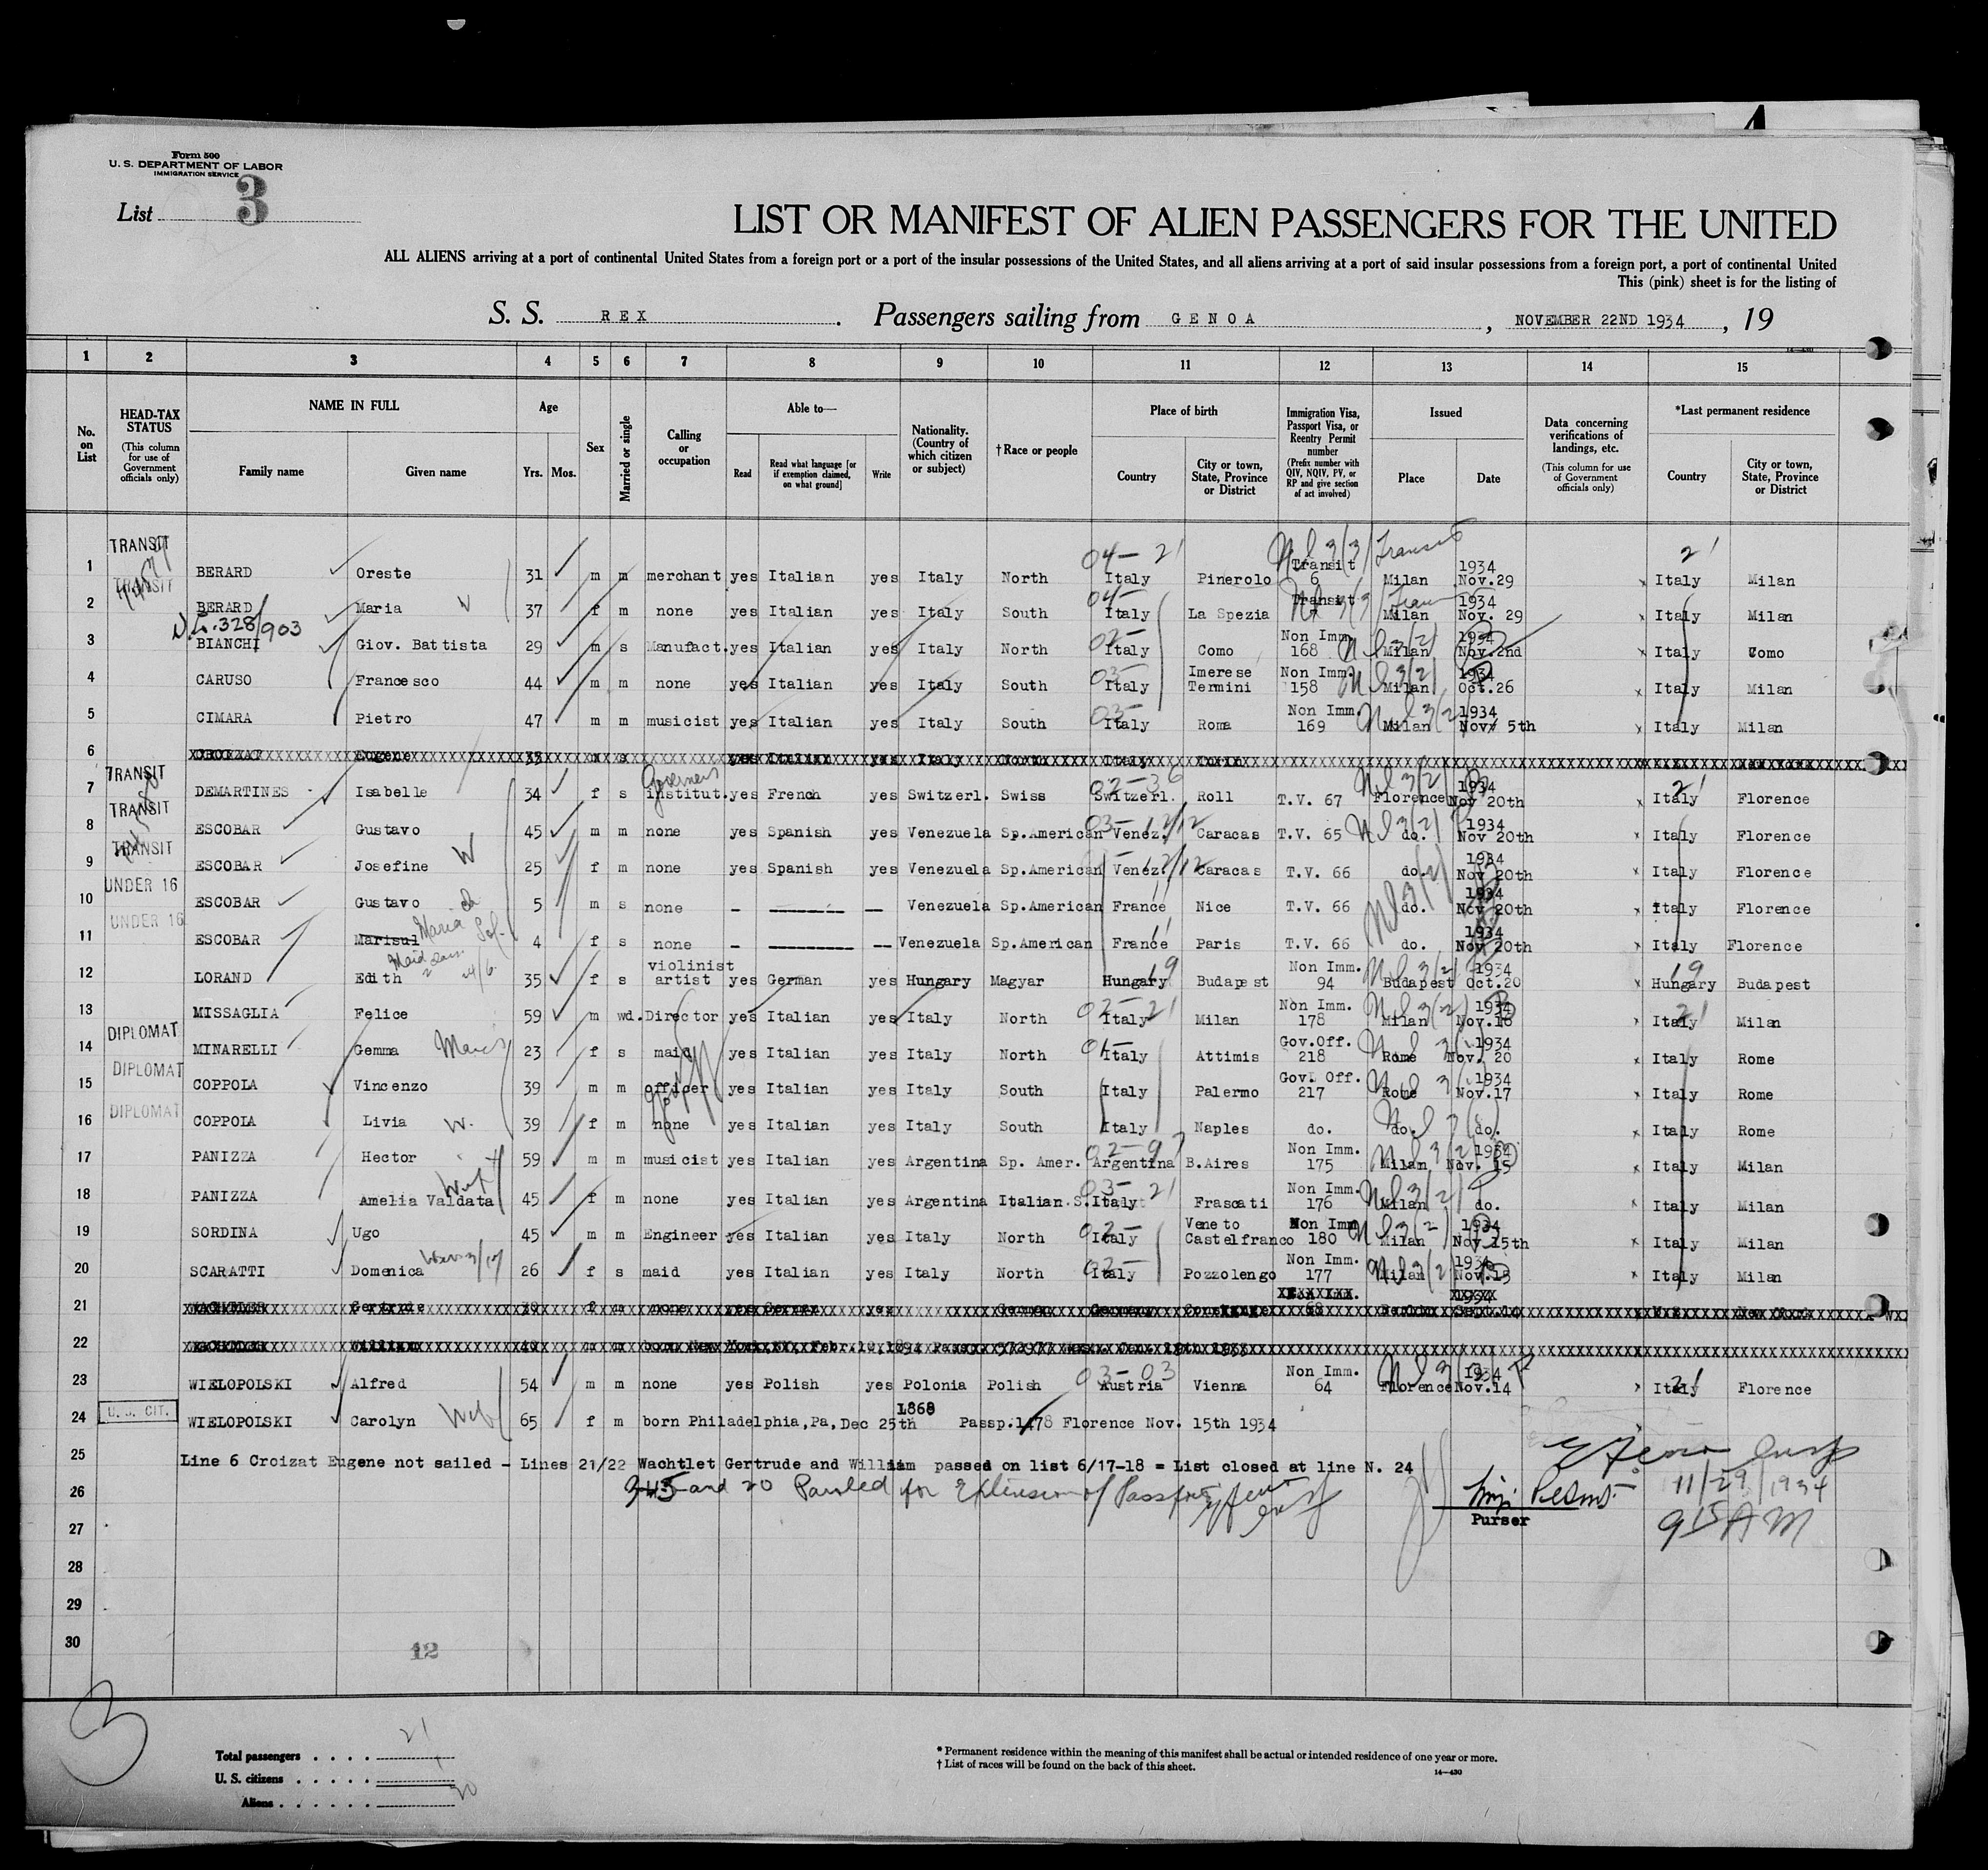 Form 500
U. S. DEPARTMENT OF LABOR
IMMIGRATION SERVICE
List 3
LIST OR MANIFEST OF ALIEN PASSENGERS FOR THE UNITED
ALL ALIENS arriving at a port of continental United States from a foreign port or a port of the insular possessions of the United States, and all aliens arriving at a port of said insular possessions from a foreign port, a port of continental United
This (pink) sheet is for the listing of
S. S. REX. Passengers sailing from GENOA, NOVEMBER 22ND 1934, 19
1 2 3 4 5 6 7 8 9 10 11 12 13 14 15
No. on List
HEAD-TAX STATUS (This column for use of Government officials only)
NAME IN FULL Family name Given name
Age Yrs. Mos.
Sex
Married or single
Calling or occupation
Able to— Read Read what language [or if exemption claimed, on what ground] Write
Nationality. (Country of which citizen or subject)
†Race or people
Place of birth Country City or town, State, Province or District
Immigration Visa, Passport Visa, or Reentry Permit number (Prefix number with QIV, NQIV, PV, or RP and give section of act involved)
Issued Place Date
Data concerning verifications of landings, etc. (This column for use of Government officials only)
*Last permanent residence Country City or town, State, Province or District
1 TRANSIT BERARD Oreste 31 m m merchant yes Italian yes Italy North 04- 21 Italy Pinerolo Transit 6 Milan 1934 Nov.29 Italy 21 Milan
2 TRANSIT BERARD Maria W 37 f m none yes Italian yes Italy South 04- Italy La Spezia Transit 7 Milan 1934 Nov. 29 Italy Milan
3 328/903 BIANCHI Giov. Battista 29 m s Manufact. yes Italian yes Italy North 02- Italy Como Non Imm. 168 Milan 1934 Nov.2nd Italy Como
4 CARUSO Francesco 44 m m none yes Italian yes Italy South 03- Italy Imerese Termini Non Imm. 158 Milan 1934 Oct.26 Italy Milan
5 CIMARA Pietro 47 m m musicist yes Italian yes Italy South 03- Italy Roma Non Imm. 169 Milan 1934 Nov/ 5th Italy Milan
6 CROIZAT Eugene 35 m s yes Italian yes Italy North Italy Turin New York
7 TRANSIT DEMARTINES Isabelle 34 f s institut. yes French yes Switzerl. Swiss 02-36 Switzerl. Roll T.V. 67 Florence 1934 Nov 20th Italy 21 Florence
8 TRANSIT ESCOBAR Gustavo 45 m m none yes Spanish yes Venezuela Sp.American 03- Venez. Caracas T.V. 65 do. 1934 Nov 20th Italy Florence
9 TRANSIT ESCOBAR Josefine W 25 f m none yes Spanish yes Venezuela Sp.American Venez. Caracas T.V. 66 do. 1934 Nov 20th Italy Florence
10 UNDER 16 ESCOBAR Gustavo ch 5 m s none - ---------- -- Venezuela Sp.American France Nice T.V. 66 do. 1934 Nov 20th Italy Florence
11 UNDER 16 ESCOBAR Marisul Maria Sol- 4 f s none - ----------- -- Venezuela Sp.American France Paris T.V. 66 do. 1934 Nov 20th Italy Florence
12 LORAND Edith 35 f s violinist artist yes German yes Hungary Magyar Hungary 19 Budapest Non Imm. 94 Budapest 1934 Oct.20 Hungary 19 Budapest
13 MISSAGLIA Felice 59 m wd. Director yes Italian yes Italy North 02- 21 Italy Milan Non Imm. 178 Milan 1934 Nov.16 Italy 21 Milan
14 DIPLOMAT MINARELLI Gemma 23 f s maid yes Italian yes Italy North 01- Italy Attimis Gov.Off. 218 Rome 1934 Nov. 20 Italy Rome
15 DIPLOMAT COPPOLA Vincenzo 39 m m officer yes Italian yes Italy South Italy Palermo Gov. Off. 217 Rome 1934 Nov.17 Italy Rome
16 DIPLOMAT COPPOLA Livia W. 39 f m none yes Italian yes Italy South Italy Naples do. do. do. Italy Rome
17 PANIZZA Hector 59 m m musicist yes Italian yes Argentina Sp. Amer. 02-97 Argentina B.Aires Non Imm. 175 Milan 1934 Nov. 15 Italy Milan
18 PANIZZA Amelia Valdata Wife 45 f m none yes Italian yes Argentina Italian.S. 03- 21 Italy Frascati Non Imm. 176 Milan do. Italy Milan
19 SORDINA Ugo 45 m m Engineer yes Italian yes Italy North 02- Italy Veneto Castelfranco Non Imm 180 Milan 1934 Nov.15th Italy Milan
20 SCARATTI Domenica 26 f s maid yes Italian yes Italy North 02- Italy Pozzolengo Non Imm. 177 Milan 1934 Nov.15 Italy Milan
21 Gertrude 39 f m none yes German yes German Germany 68 Sept.14 New York
22 William m m born New York Febr.12.1894
23 WIELOPOLSKI Alfred 54 m m none yes Polish yes Polonia Polish 03-03 Austria Vienna Non Imm. 64 Florence 1934 Nov.14 Italy 21 Florence
24 U. S. CIT. WIELOPOLSKI Carolyn Wife 65 f m born Philadelphia,Pa,Dec 25th 1868 Passp.1478 Florence Nov. 15th 1934
25 Line 6 Croizat Eugene not sailed - Lines 21/22 Wachtlet Gertrude and William passed on list 6/17-18 = List closed at line N. 24
26 and 20 Paroled for Extension of Passport
11/29/1934
Purser
9 15 AM
27
28
29
30
12
3
Total passengers . . . . 21
U. S. citizens . . . . . 1
Aliens . . . . . . 20
* Permanent residence within the meaning of this manifest shall be actual or intended residence of one year or more.
† List of races will be found on the back of this sheet.
14—430